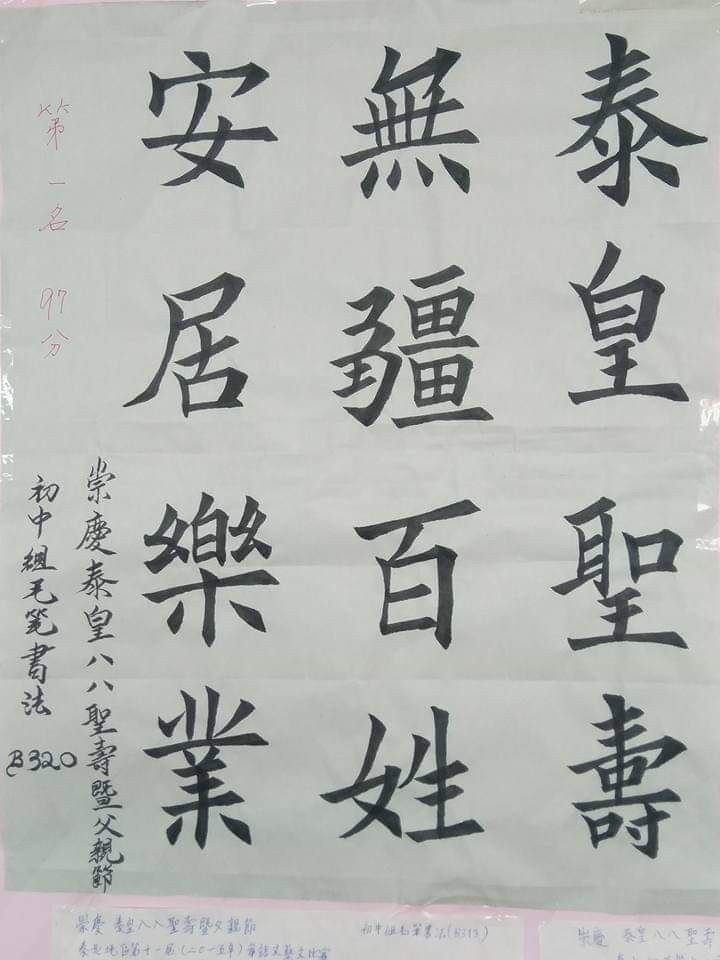 泰皇聖壽
無疆百姓
安居樂業
崇慶泰皇八八聖壽暨父親節
初中組毛笔書法 B320
第一名 97分
崇慶 泰皇八八聖壽暨父親節
泰北地區第十一屆(二〇一五年)華語文藝文比賽
初中組毛筆書法(B313)
崇慶 泰皇八八聖壽